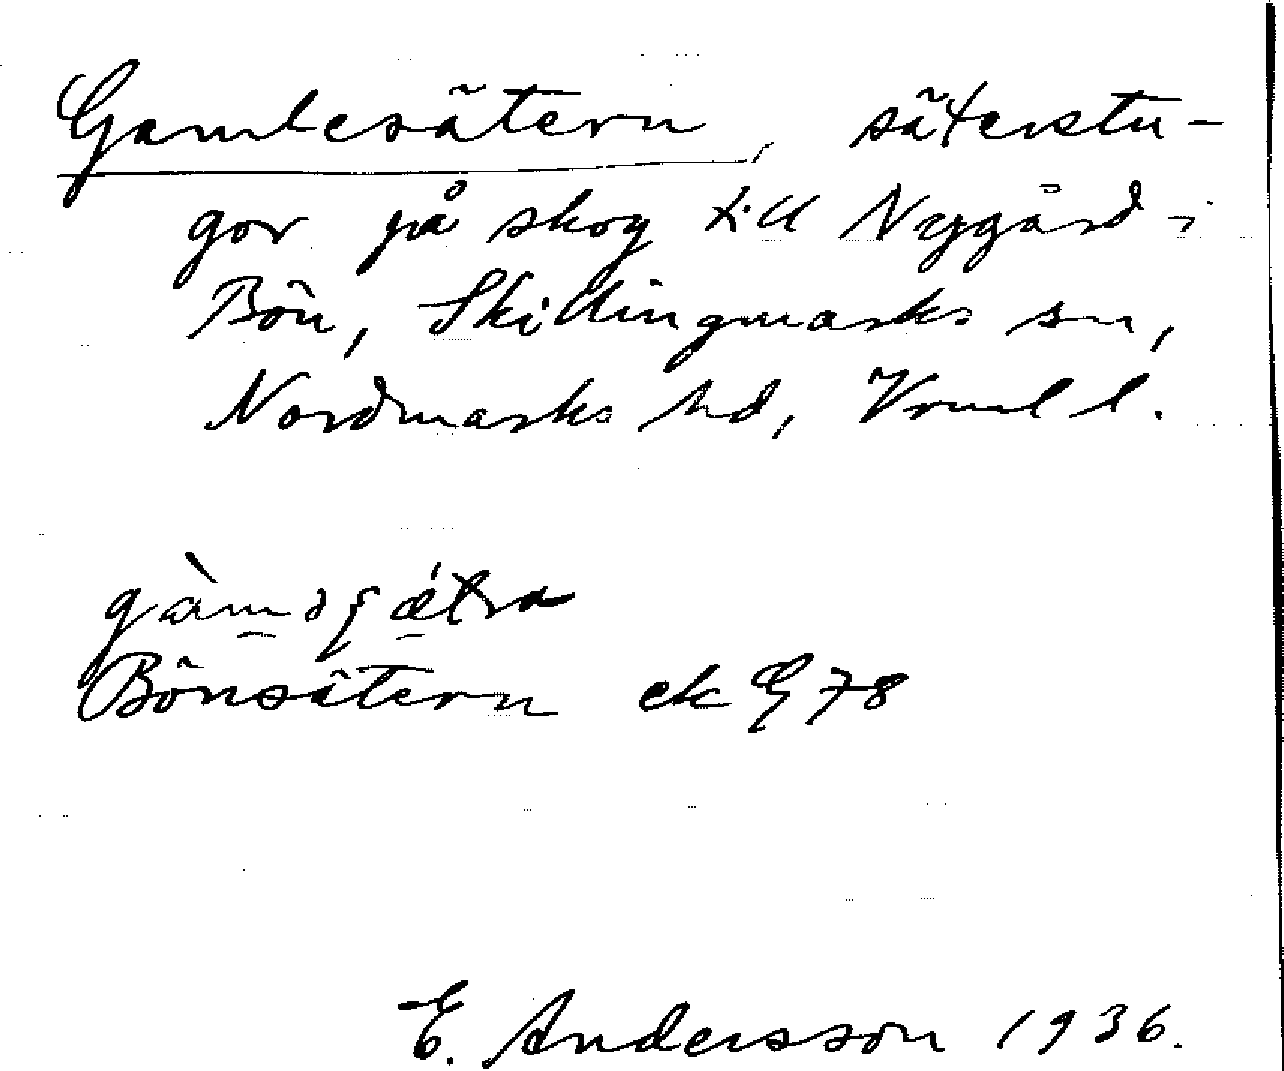 Gamlesätern, säterstu-
gor på skog till Nygård i
Bön, Skillingmarks sn,
Nordmarks hd, Vrml l.
gàməʂǽtra
Bönsätern ek G 78
E. Andersson 1936.